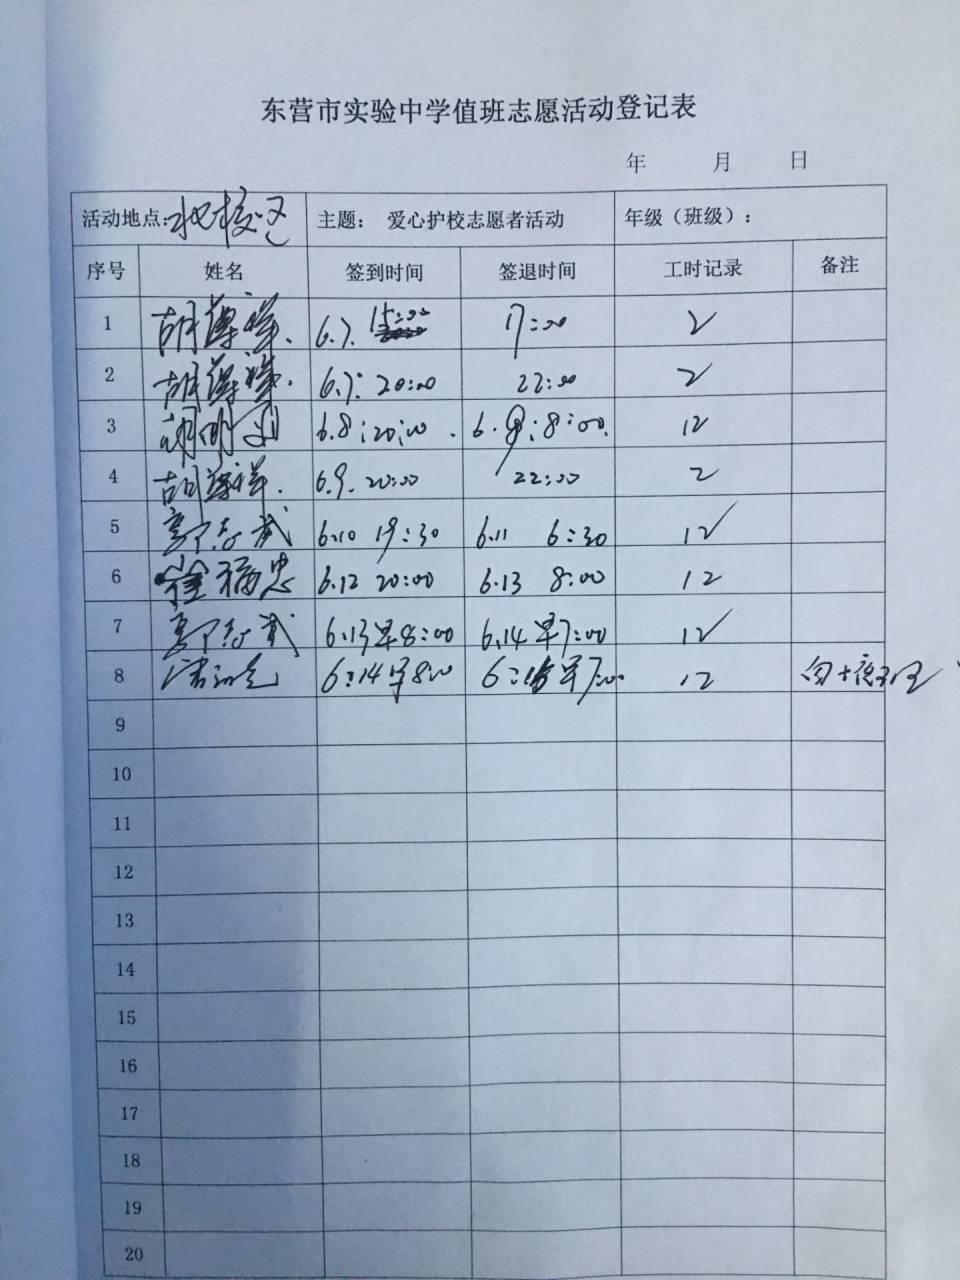 东营市实验中学值班志愿活动登记表
年 月 日
活动地点: 北校区 主题: 爱心护校志愿者活动 年级（班级）:
序号 姓名 签到时间 签退时间 工时记录 备注
1 胡尊祥. 6.7. 15:00 17:00 2
2 胡尊祥. 6.7: 20:00 22:00 2
3 胡明 6.8:20:00. 6.9:8:00. 12
4 胡尊祥. 6.9. 20:00 22:00 2
5 郭志武 6.10 19:30 6.11 6:30 12
6 崔福忠 6.12 20:00 6.13 8:00 12
7 郭志武 6.13早8:00 6.14早7:00 12
8 6:14早800 6:15早7:00. 12
9
10
11
12
13
14
15
16
17
18
19
20